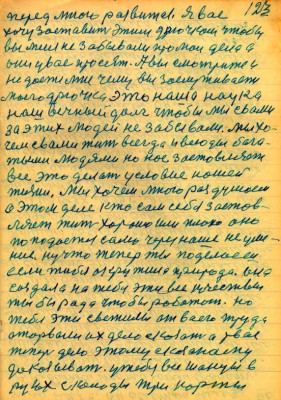 12/3
перед много развится. Я вас
хочу заставит этим дрючком чтобы
вы мне не забывали про мои дела а
они у вас просят. А вы смотрите и
недостойни чему вы заслуживаете
моего дрючка это наша наука
наш вечный долг чтобы мы с вами
за этих людей не забывали. Мы хо-
чем с вами жит всегда и везде бога-
тыми людями но нас заставляют
все это делат условие нашей
жизни, мы хочем много раздумаем
в этом деле кто сам себя застав-
ляет жит хорошо или плохо оно
попадается само, через наше не уме-
ние, ну что теперь ты поделаеш
если тибя окружила природа. она
создала на тебя эти все качества
ты бы рада чтобы работат. но
тебя эти свежили от всего труда
оторвали их дело сказат а рвас
тепер дело этому сказаному
доказыват. у тебя все шансы в
руках с колоды три карты